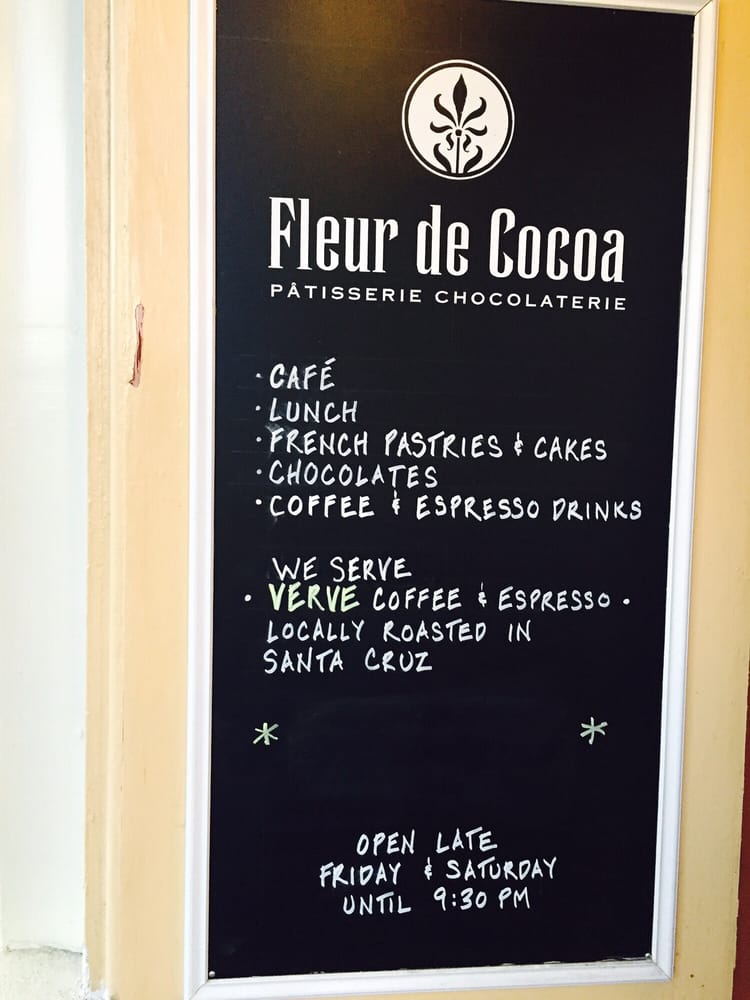 Fleur de Cocoa
PÂTISSERIE CHOCOLATERIE
· CAFÉ
· LUNCH
· FRENCH PASTRIES & CAKES
· CHOCOLATES
· COFFEE & ESPRESSO DRINKS
WE SERVE
· VERVE COFFEE & ESPRESSO ·
LOCALLY ROASTED IN
SANTA CRUZ
* *
OPEN LATE
FRIDAY & SATURDAY
UNTIL 9:30 PM